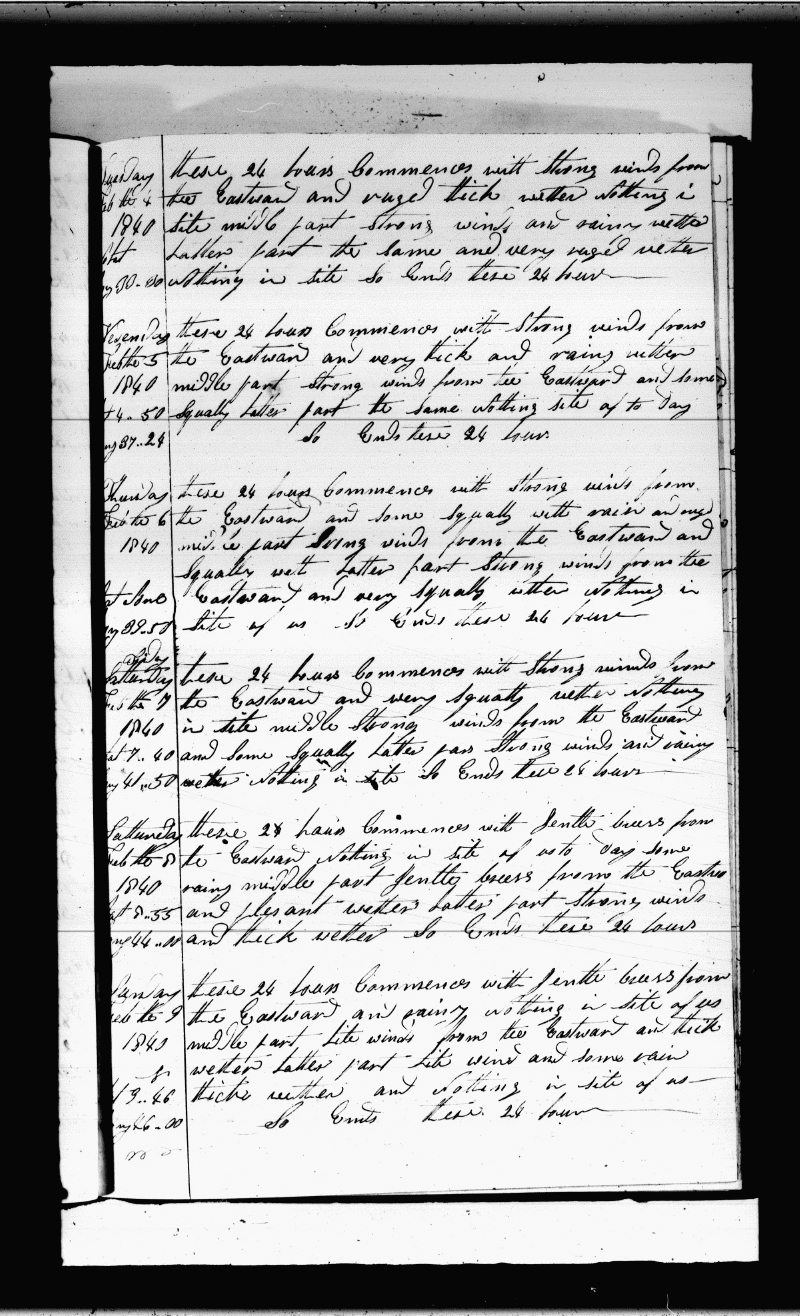 Tuesday these 24 hours Commences with Strong winds from
Feb the 4 the Eastward and ruged thick wether Nothing i
1840 site middle part Strong winds and rainy wether
Latter part the Same and very ruged wether
30-30 nothing in site So Ends these 24 hours
these 24 hours Commences with Strong winds from
Feb the 5 the Eastward and very thick and rainy wether
1840 middle part Strong winds from the Eastward and some
4..50 Squally Latter part the Same Nothing site of to Day
37..24 So Ends these 24 hours
Thursday these 24 hours Commences with Strong winds from
Feb the 6 the Eastward and some Squally with rain and
1840 middle part Strong winds from the Eastward and
Squally with Latter part Strong winds from the
Eastward and very Squally wether Nothing in
39-50 Site of us So Ends these 24 hours
Friday
these 24 hours Commences with Strong winds from
Feb the 7 the Eastward and very Squally wether Nothing
1840 in site middle Strong winds from the Eastward
7..40 and Some Squally Latter part Strong winds and rainy
41..50 wether Nothing in Site So Ends these 24 hours
Satturday these 24 hours Commences with Jentle brees from
Feb the 8 the Eastward Nothing in site of us to Day some
1840 rainy middle part Jentle brees from the
8..55 and plesant wether Latter part Strong winds
44..00 and thick wether So Ends these 24 hours
Sunday these 24 hours Commences with Jentle brees from
Feb the 9 the Eastward and rainy Nothing in site of us
1840 middle part Lite winds from the Eastward and thick
wether Latter part Lite wind and some rain
9..46 thicke wether and Nothing in site of us
46-00 So Ends these 24 hours